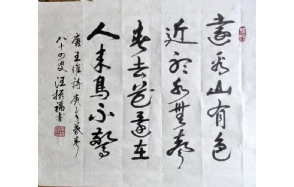 遠看山有色
近聽水無聲
春去花還在
人來鳥不驚
唐王維詩庚子歲冬
八十四叟汪振福書